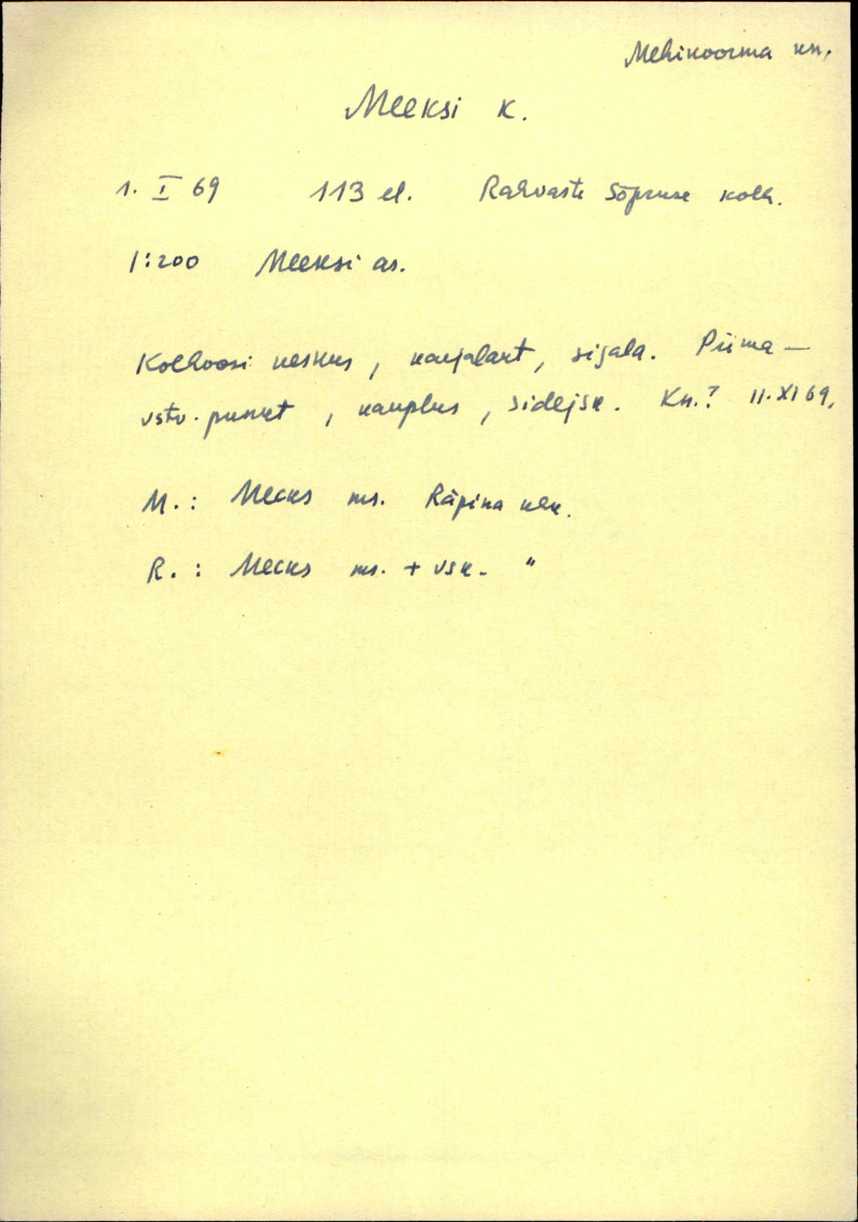 Mehikoorma kn.
Meeksi k.
1. I 69 113 el. Rahvaste Sõpruse kolh.
1:200 Meeksi as.
Kolhoosi keskus, karjalaut, sigala. Piima-
vstv. punkt, kauplus, sidejsk. Kn.? 11.XI 69.
M.: Meeks ms. Räpina khk.
R.: Meeks ms. + vsk. "